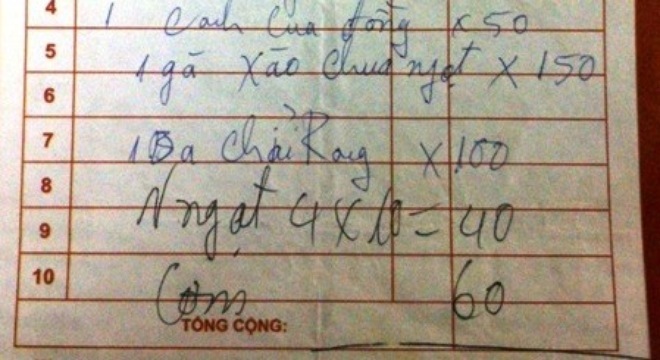 4 1 Canh Cua đồng x 50
5 1 gà xào chua ngọt x 150
6
7 1 Ba chỉ Rang x 100
8
9 N ngọt 4 x 10 = 40
10 Cơm 60
TỔNG CỘNG: